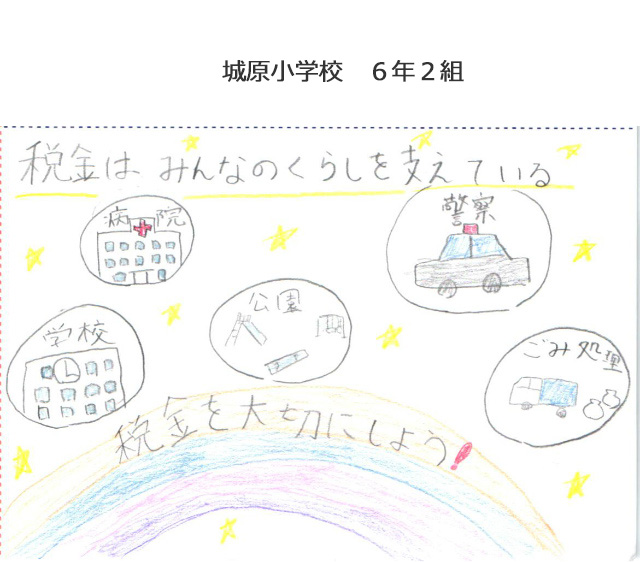 城原小学校　６年２組
税金はみんなのくらしを支えている
病院
警察
公園
学校
ごみ処理
税金を大切にしよう!